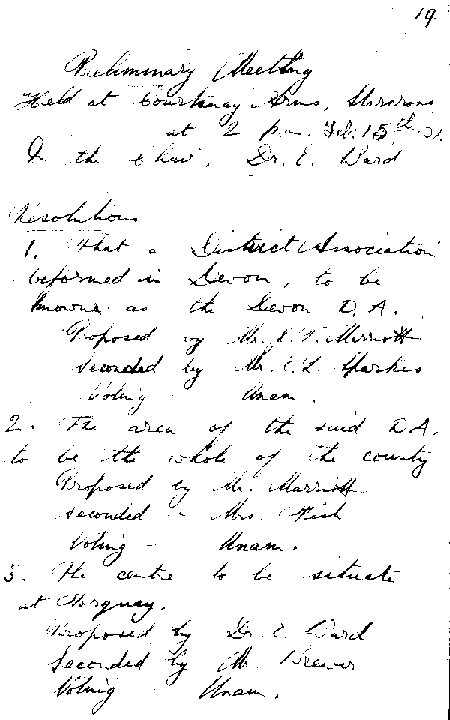 19
Preliminary Meeting
Held at Courtenay Arms, Starcross
at 2 p.m. Feb. 15th 31.
In the Chair. Dr. E. Ward
Resolutions
1. That a District Association
be formed in Devon, to be
known as the Devon D.A.
Proposed by Mr. Marriott
Seconded by Mr. Sparkes
Voting Unam.
2. The area of the said D.A.
to be the whole of the county
Proposed by Mr. Marriott
seconded - Mrs. Fish
Voting - Unam.
3. The centre to be situate
at Torquay.
Proposed by Dr. E. Ward
Seconded by Mr. Brewer
Voting Unam.